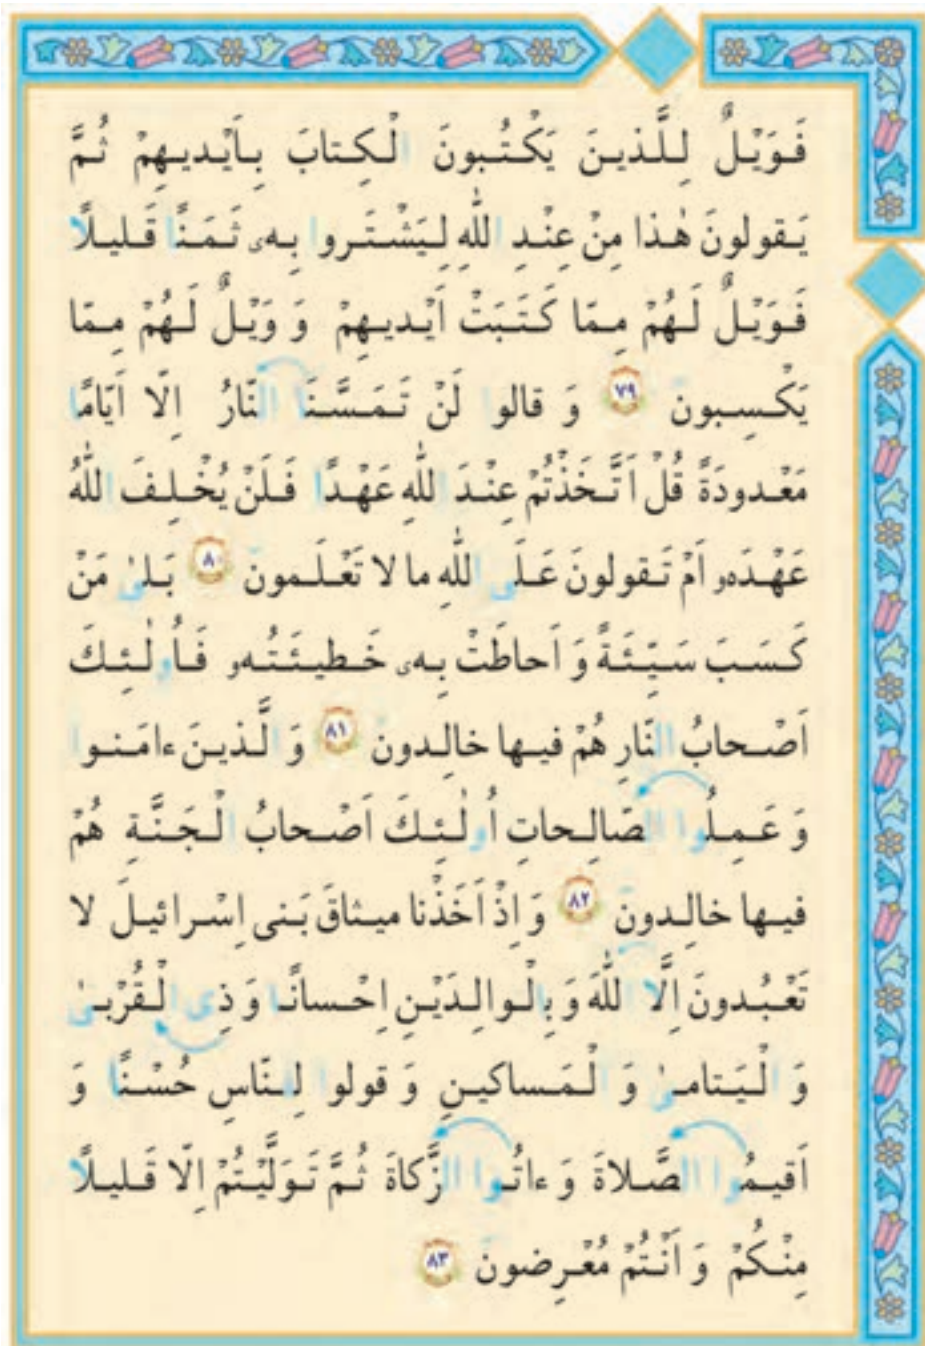 فَوَيْلٌ لِلَّذينَ يَكْتُبونَ الْكِتابَ بِاَيْديهِمْ ثُمَّ
يَقولونَ هٰذا مِنْ عِنْدِ اللّٰهِ لِيَشْتَروا بِهۦ ثَمَنًا قَليلًا
فَوَيْلٌ لَهُمْ مِمّا كَتَبَتْ اَيْديهِمْ وَ وَيْلٌ لَهُمْ مِمّا
يَكْسِبونَ ٧٩ وَ قالوا لَنْ تَمَسَّنَا النّارُ اِلّا اَيّامًا
مَعْدودَةً قُلْ اَتَّخَذْتُمْ عِنْدَ اللّٰهِ عَهْدًا فَلَنْ يُخْلِفَ اللّٰهُ
عَهْدَهۥ اَمْ تَقولونَ عَلَى اللّٰهِ ما لا تَعْلَمونَ ٨٠ بَلىٰ مَنْ
كَسَبَ سَيِّئَةً وَ اَحاطَتْ بِهۦ خَطيئَتُهۥ فَاُولٰئِكَ
اَصْحابُ النّارِ هُمْ فيها خالِدونَ ٨١ وَ الَّذينَ ءامَنوا
وَ عَمِلُوا الصّالِحاتِ اُولٰئِكَ اَصْحابُ الْجَنَّةِ هُمْ
فيها خالِدونَ ٨٢ وَ اِذْ اَخَذْنا ميثاقَ بَنى اِسْرائيلَ لا
تَعْبُدونَ اِلَّا اللّٰهَ وَ بِالْوالِدَيْنِ اِحْسانًا وَ ذِى الْقُرْبىٰ
وَ الْيَتامىٰ وَ الْمَساكينِ وَ قولوا لِلنّاسِ حُسْنًا وَ
اَقيمُوا الصَّلاةَ وَ ءاتُوا الزَّكاةَ ثُمَّ تَوَلَّيْتُمْ اِلّا قَليلًا
مِنْكُمْ وَ اَنْتُمْ مُعْرِضونَ ٨٣